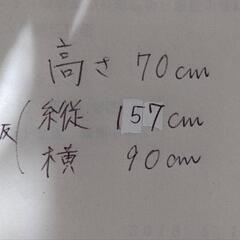 高さ 70cm
縦 157cm
横 90cm